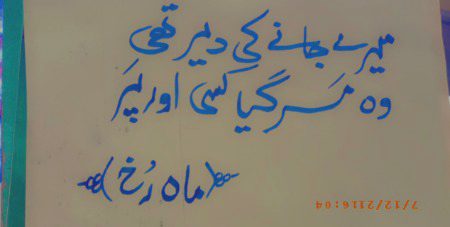 میرے جانے کی دیر تھی
وہ مَر گیا کسی اور پَر
(ماہ رُخ)
7/12/21 16:04